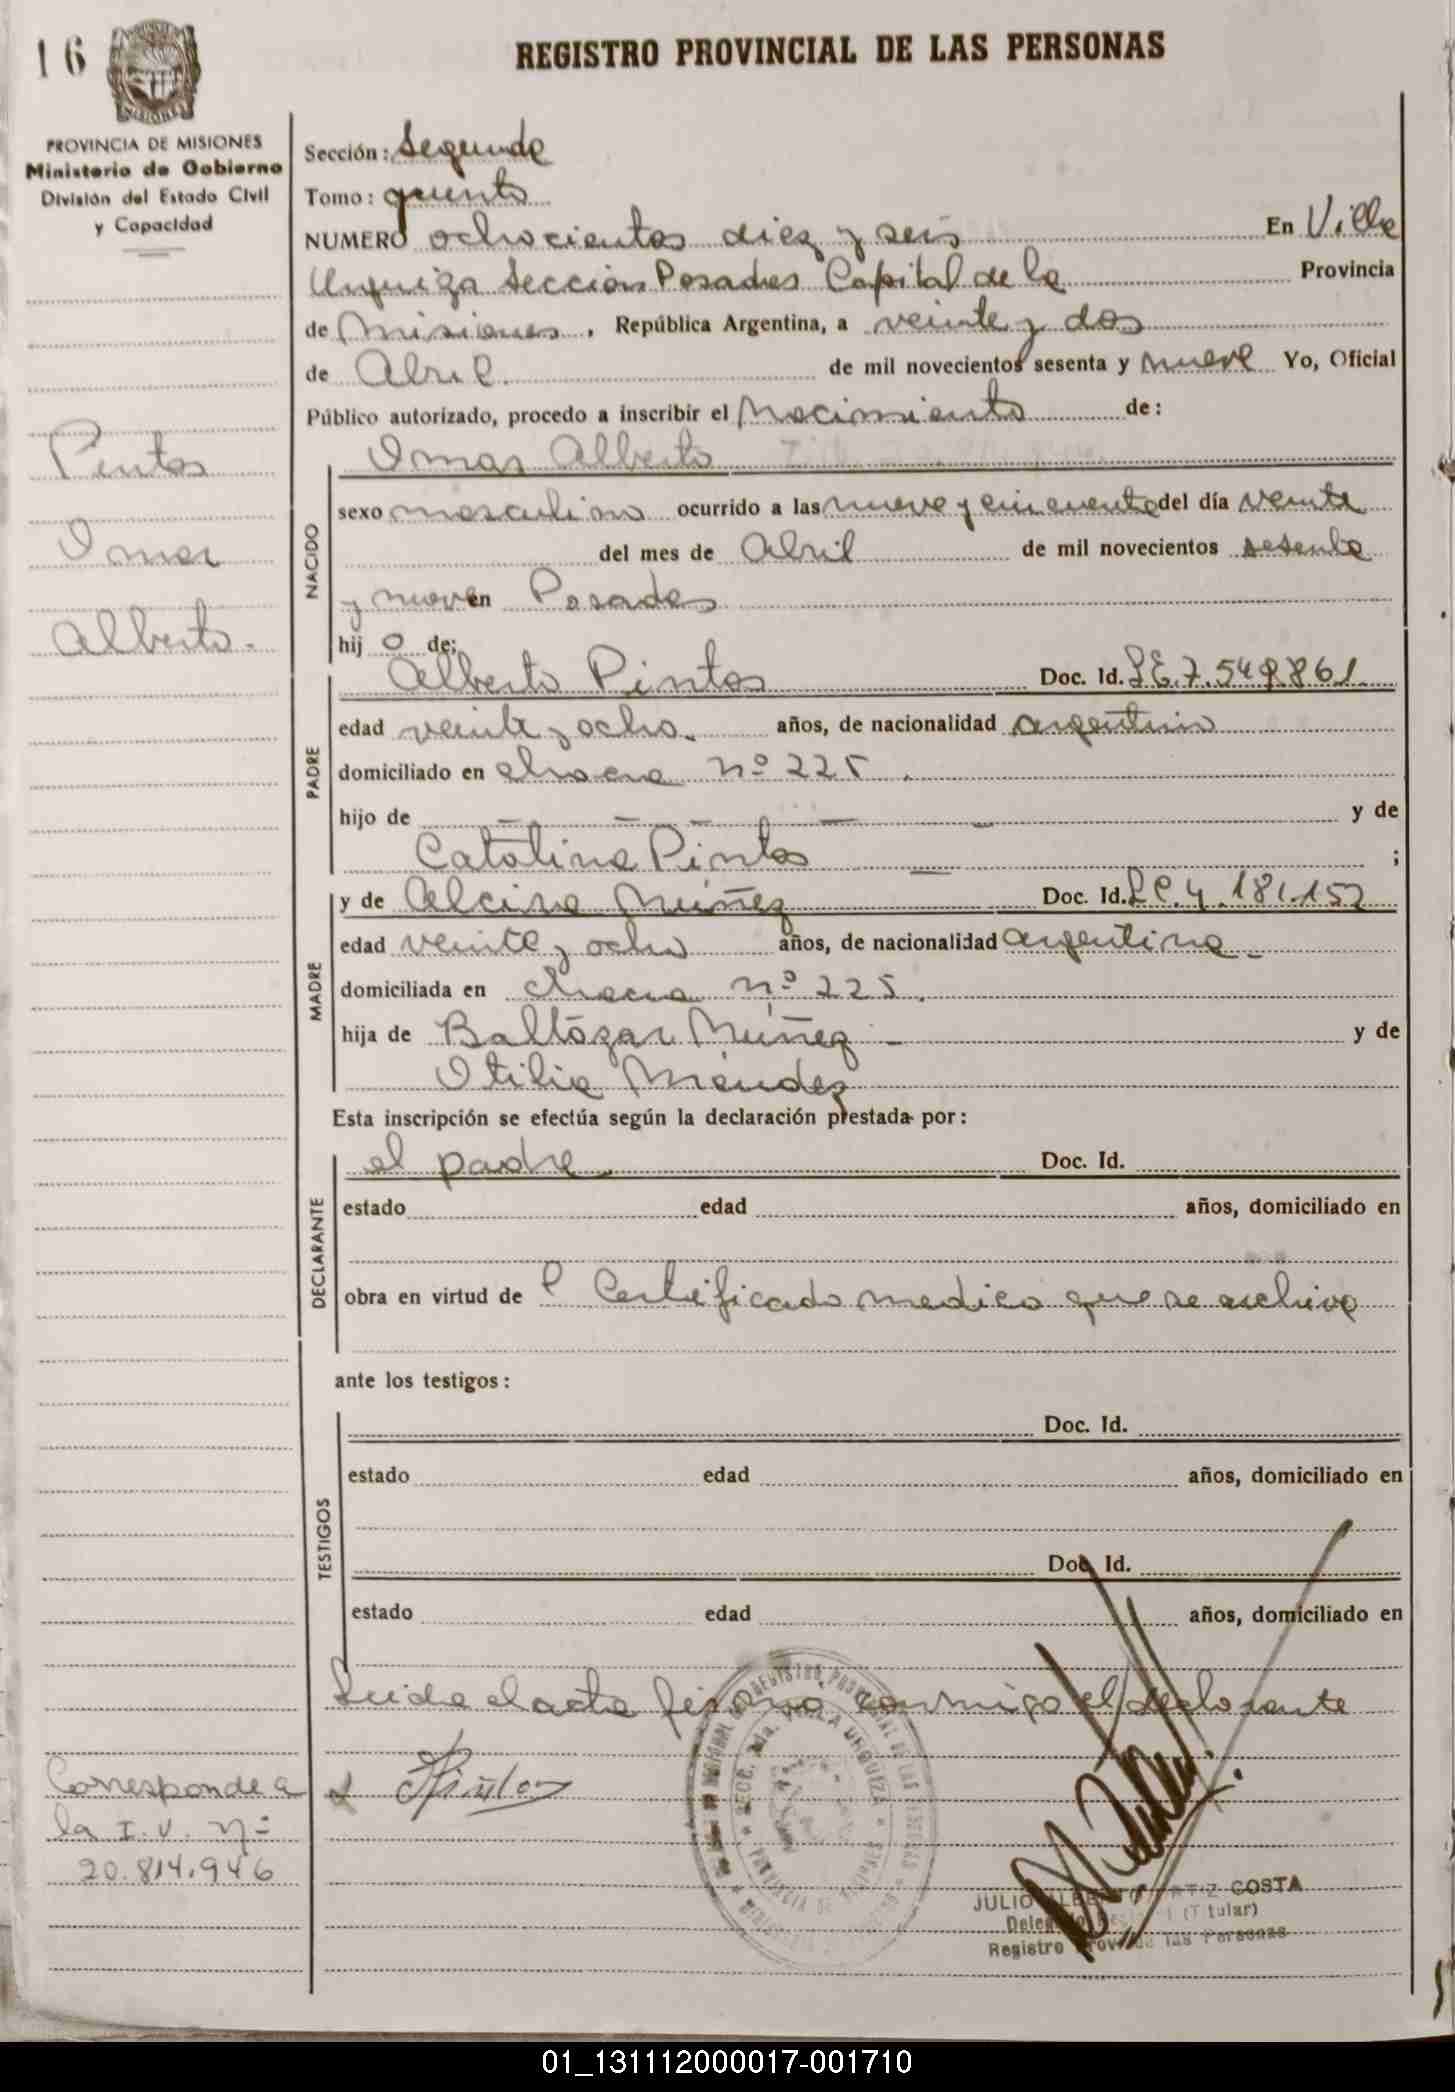 16
REGISTRO PROVINCIAL DE LAS PERSONAS
PROVINCIA DE MISIONES
Ministerio de Gobierno
División del Estado Civil
y Capacidad
Sección: Segunda
Tomo: quinto
NUMERO ochocientos diez y seis En Villa
Urquiza Sección Posadas Capital de la Provincia
de Misiones, República Argentina, a veinte y dos
de Abril de mil novecientos sesenta y nueve Yo, Oficial
Público autorizado, procedo a inscribir el Nacimiento de:
Pintos
Omar
Alberto.
NACIDO
Omar Alberto
sexo masculino ocurrido a las nueve y cincuenta del día veinte
del mes de Abril de mil novecientos sesenta
y nueve en Posadas
hijo de:
PADRE
Alberto Pintos Doc. Id. L.E. 7.549.861
edad veinte y ocho. años, de nacionalidad argentino
domiciliado en chacra nº 225.
hijo de — — — — — y de
Catalina Pintos — ;
MADRE
y de Alcira Múñez Doc. Id. L.C. 4.181.152
edad veinte y ocho años, de nacionalidad argentina
domiciliada en chacra nº 225.
hija de Baltázar Múñez - y de
Otilia Méndez
Esta inscripción se efectúa según la declaración prestada por:
DECLARANTE
el padre Doc. Id.
estado edad años, domiciliado en
obra en virtud de l Certificado medico que se archiva
ante los testigos:
TESTIGOS
Doc. Id.
estado edad años, domiciliado en
Doc. Id.
estado edad años, domiciliado en
Leida el acta firma conmigo el declarante
Pintos
Corresponde a
la I.U. Nº
20.814.946
SECC. 2da. VILLA URQUIZA
PROVINCIA DE MISIONES
JULIO ALBERTO ORTIZ COSTA
Delegado (Titular)
Registro Prov. de las Personas
01_131112000017-001710